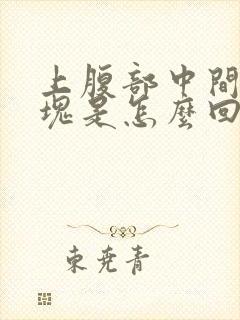 上腹部中間
塊是怎麼回
東堯青